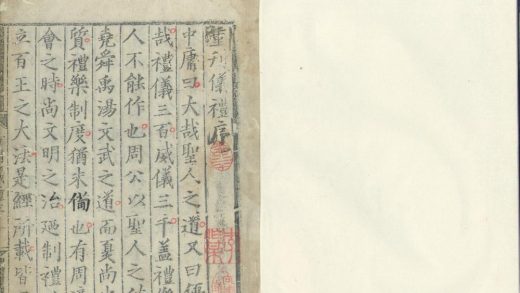 重刋儀禮序
中庸曰大哉聖人之道又曰優
哉禮儀三百威儀三千盖禮樂
人不能作也周公以聖人之
堯舜禹湯文武之道而夏尚
質禮樂制度猶未備也有周
會之時尚文明之治廼制禮
立百王之大法是經所載皆